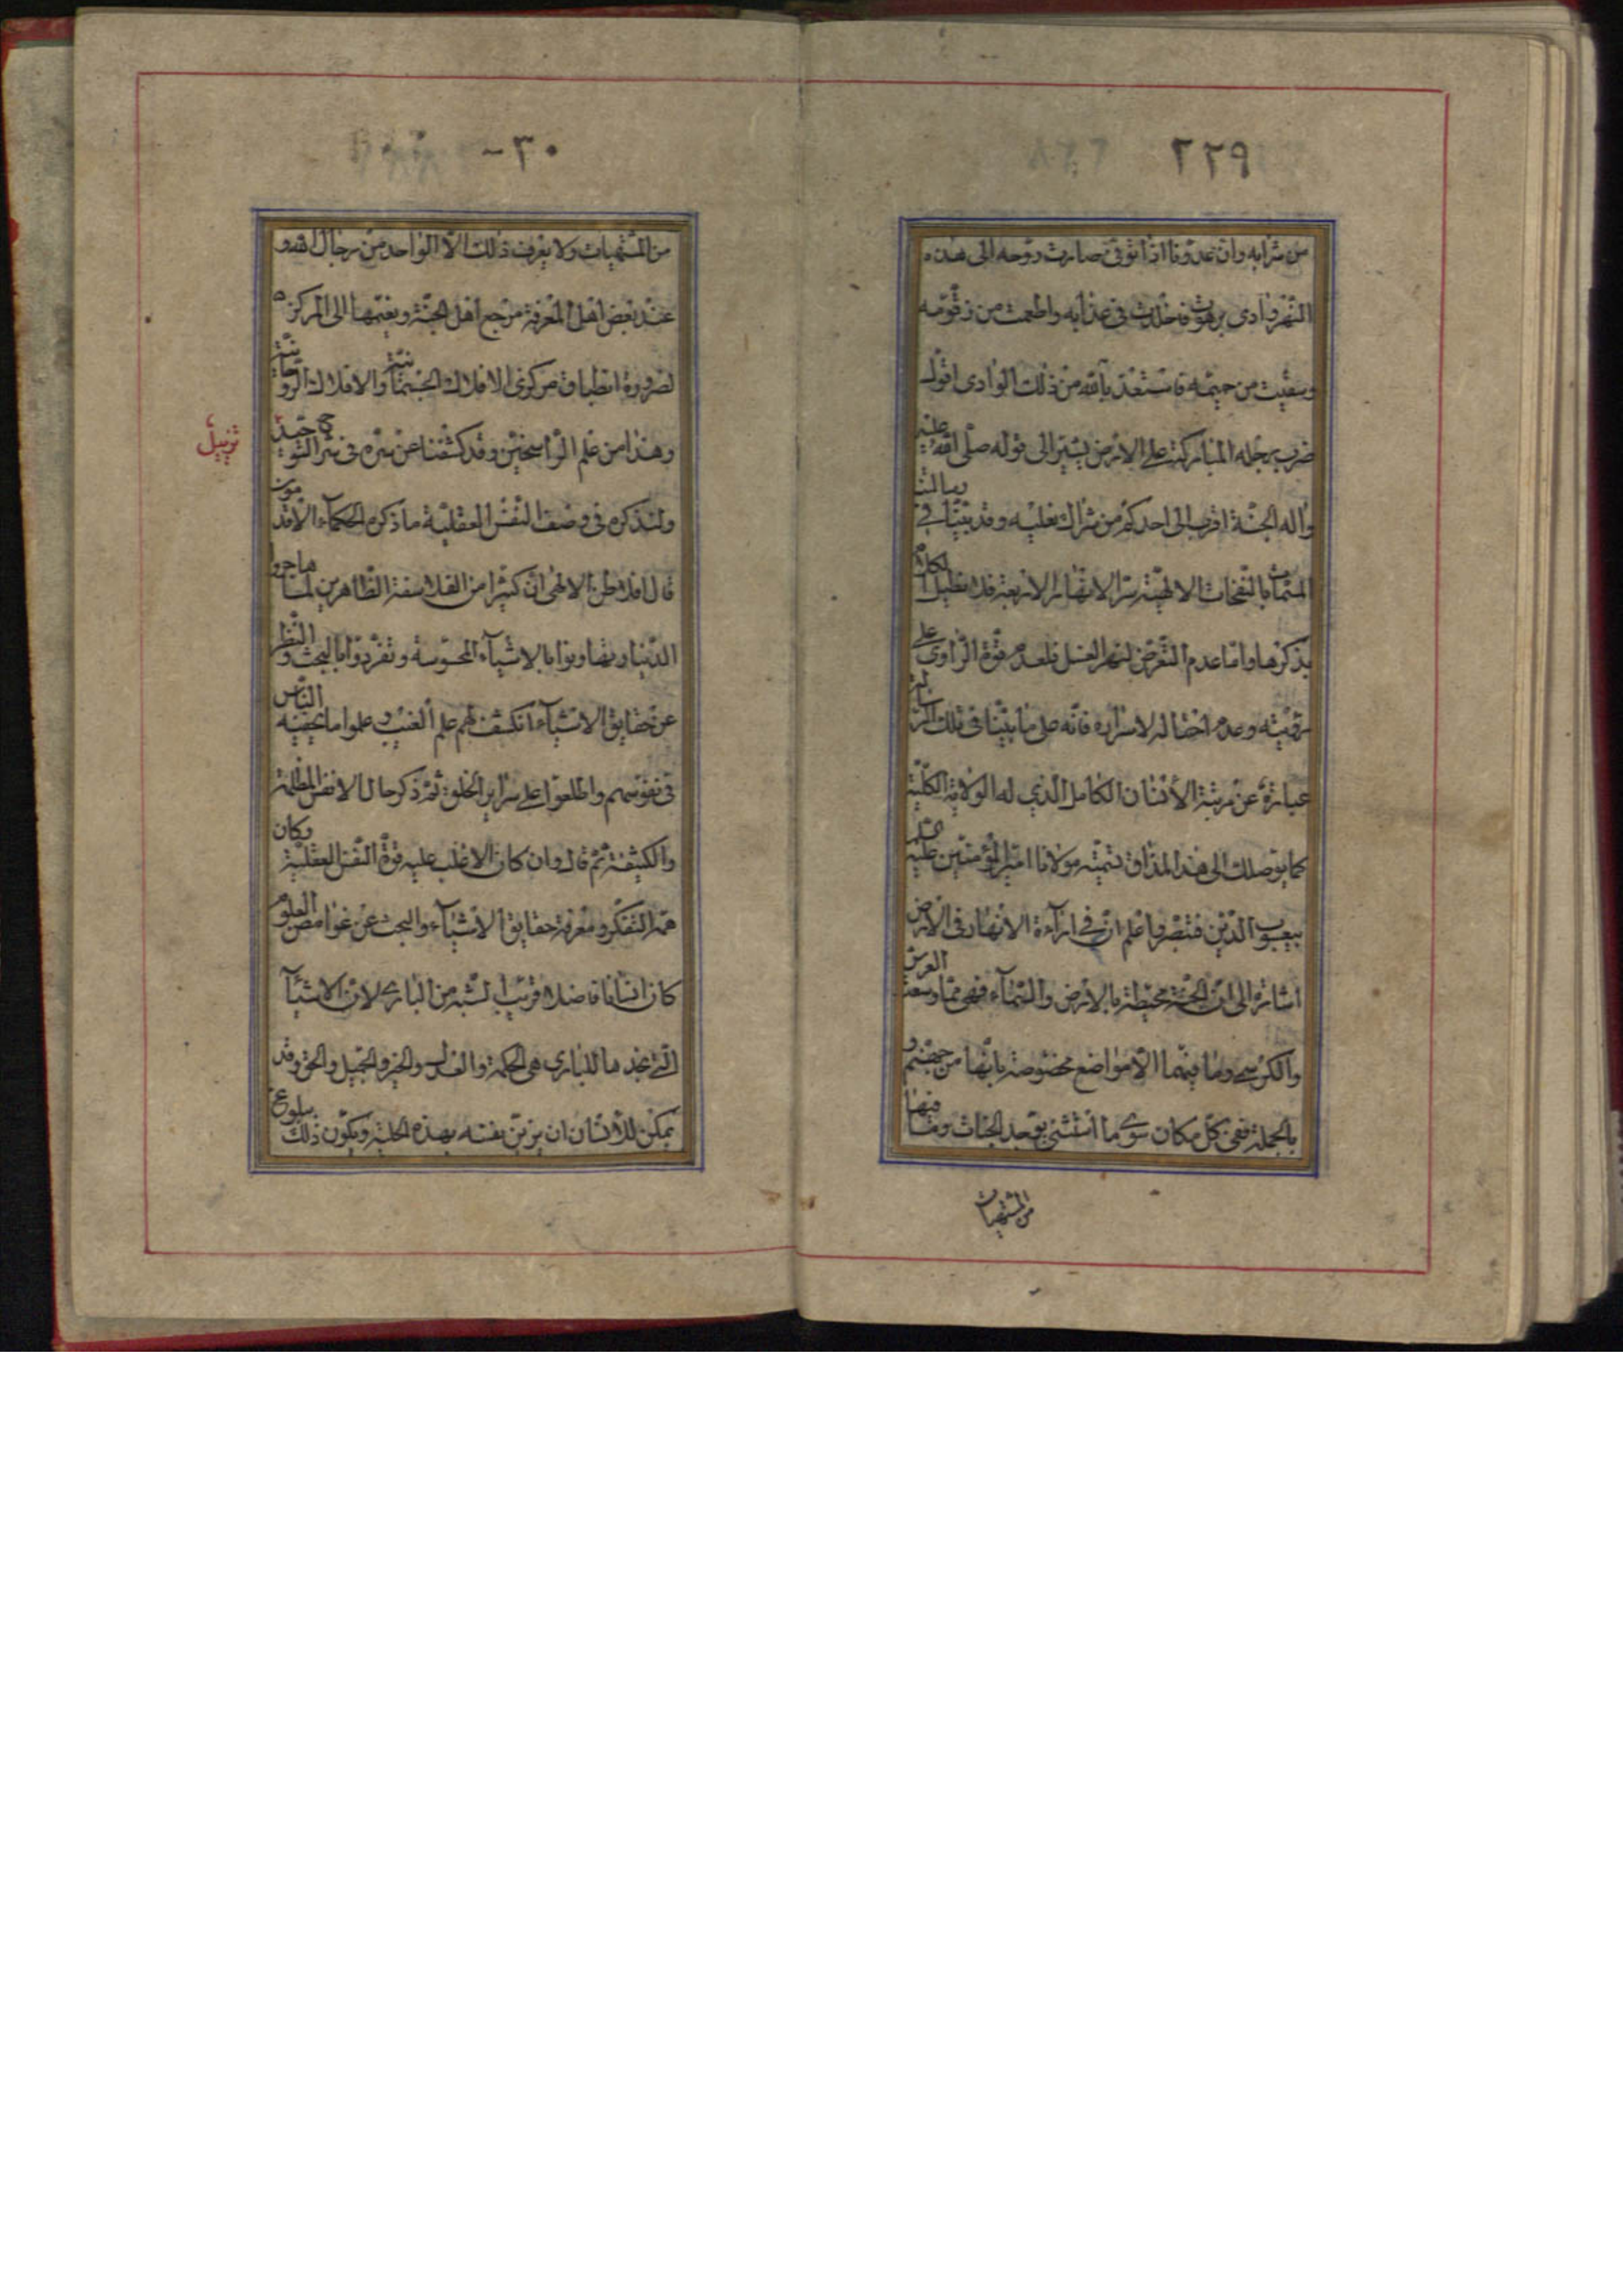 ٢٢٩
من شرابه وان عدونا اذا توفى صارت روحه الى هذه
النهر وادى برهوت فخلدت فى عذابه واطعمت من زقومه
وسقيت من حميمه فاستعذ بالله من ذلك الوادى اقول
ضرب رجله المباركة على الارض يشير الى قوله صلى الله عليه
واله الجنة اقرب الى احدكم من شراك نعليه وقد بينا فى رسالتنا
المسماة بالنفحات الالهية سر الانهار الاربعة فلا نطيل الكلام
بذكرها واما عدم التعرض لنهر العسل فلعدم قوة الراوى على
رؤيته وعدم احتماله لاسراره فانه على ما بينا فى تلك الرسالة
عبارة عن مرتبة الانسان الكامل الذي له الولاية الكلية
كما يوصلك الى هذا المذاق تسميته مولانا امير المؤمنين عليه السلم
بيعسوب الدين فتبصر واعلم ان في اراءة الانهار فى الارض
اشارة الى ان الجنة محيطة بالارض والسماء فهى مما وسعت العرش
والكرسي وما فيهما الا مواضع مخصوصة بانها من جهنم و
بالجملة ففى كل مكان سوى ما استثنى يوجد الجنات وما فيها
من المشتهيات
٢٣٠
من المشتهيات ولا يعرف ذلك الا الواحد من رجال الله و
عند بعض اهل المعرفة مرجع اهل الجنة ونعيمها الى المركز
لضرورة انطباق مركزى الافلاك الجسمانية والافلاك الروحانية
وهذا من علم الراسخين وقد كشفنا عن سره فى شرح التوحيد
تذييل
ولنذكر فى وصف النفس العقلية ما ذكره الحكماء الاقدمون
قال افلاطن الالهى ان كثيرا من الفلاسفة الطاهرين لما هاجروا
الدنيا وتهاونوا بالاشياء المحسوسة وتفردوا بالبحث والنظر
عن حقايق الاشياء انكشف لهم علم الغيب وعلموا ما يخفيه الناس
فى نفوسهم واطلعوا على سراير الخلق ثم ذكر حال الانفس المظلمة
والكثيفة ثم قال وان كان الاغلب عليه قوة النفس العقلية وكان
همه التفكر ومعرفة حقايق الاشياء والبحث عن غوامض العلوم
كان انسانا فاضلا قريب الشبه من البارى لان الاشياء
التي نجدها للبارى هى الحكمة والعدل والخير والجميل والحق وقد
يمكن للانسان ان يزين نفسه بهذه الحلية ويكون ذلك ببلوغ